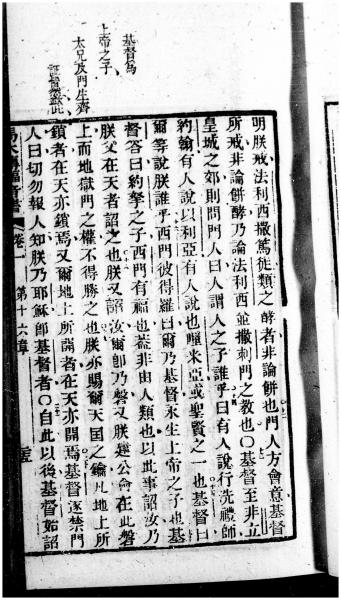 基督爲
上帝之子
太兄及門生齊
明朕戒法利西撒篤徙類之酵者非論餅也門人方會意基督
所戒非論餅酵乃論法利西並撒刺門之教也〇基督至非立
皇城之郊則問門人曰人謂人之子誰乎曰有人說行洗禮師
約翰有人說以利亞有人說也哩米亞或聖賢之一也基督曰
爾等說朕誰乎西門彼得羅曰爾乃基督永生上帝之子也基
督答曰約孥之子西門有福也葢非由人類也以此事詔汝乃
朕父在天者詔之也朕又詔汝爾卽乃磐又朕建公會在此磐
上而地獄門之權不得勝之也朕亦賜爾天国之鑰凡地上所
鎖者在天亦鎖焉又爾地上所開者在天亦開焉基督遂禁門
人曰切勿報人知朕乃耶穌卽基督者〇自此以後基督始詔
馬太傳福音書 卷一 第十六章